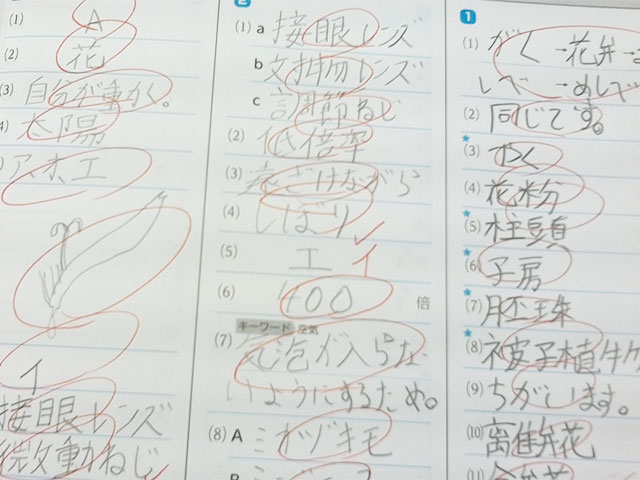 (1) A
(2) 花
(3) 自分が動く。
4) 太陽
ア,ホ,エ
イ
接眼レンズ
微動ねじ
2
(1) a 接眼レンズ
b 対物レンズ
c 調節ねじ
(2) 低倍率
(3) 遠ざけながら
(4) しぼり
(5) エ イ
(6) 400 倍
キーワード 空気
(7) 気泡が入らな
いようにするため。
(8) A ミカヅキモ
1
(1) がく→花弁→
しべ→めしべ
(2) 同じです。
(3) やく
(4) 花粉
(5) 柱頭
(6) 子房
(7) 胚珠
(8) 被子植
(9) ちがいます。
(10) 离弁花
(11)